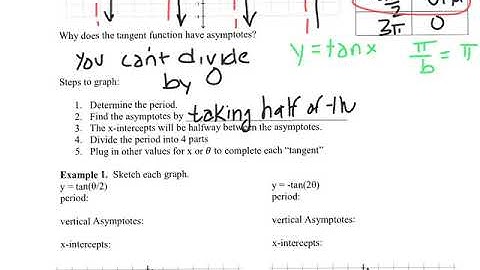 Why does the tangent function have asymptotes?
You can't divide
by 0
y = tan x
π/b = π
3π 0
Steps to graph:
1. Determine the period.
2. Find the asymptotes by taking half of th
3. The x-intercepts will be halfway between the asymptotes.
4. Divide the period into 4 parts
5. Plug in other values for x or θ to complete each “tangent”
Example 1. Sketch each graph.
y = tan(θ/2) y = -tan(2θ)
period: period:
vertical Asymptotes: vertical Asymptotes:
x-intercepts: x-intercepts: